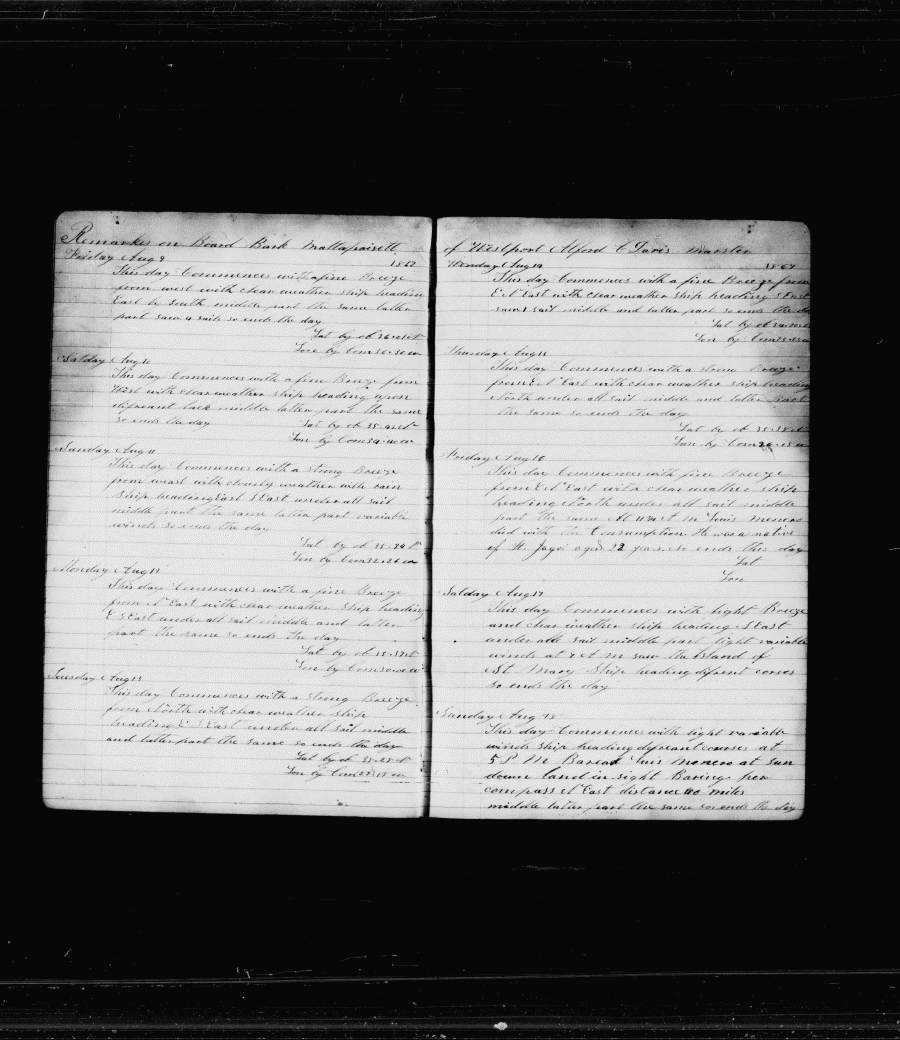 Remarks on Board Bark Mattapoisett
Friday Aug 9 1867
This day Commences with a fine Breeze
from west with clear weather ship heading
East by South middle part the same latter
part saw 4 sails so ends the day
Lat by ob
Lon by Crom
Satday Aug 10
This day Commences with a fine Breeze from
West with clear weather ship heading apon
difreant tack middle latter part the same
so ends the day Lat by ob
Lon by Crom
Sunday Aug 11
This day Commences with a strong Breeze
from weast with cloudy weather with rain
ship heading East S East under all sail
middle part the same latter part variable
winds so ends the day
Lat by ob 35-34 N
Lon by Crom 32-26 w
Monday Aug 12
This day Commences with a fine Breeze
from N East with clear weather ship heading
E S East under all sail middle and latter
part the same so ends the day
Lat by ob 35-37 N
Lon by Crom
Tuesday Aug 13
This day Commences with a strong Breeze
from North with clear weather ship
heading E S East under all sail middle
and latter part the same so ends the day
Lat by ob 35-25 N
Lon by Crom
of Westport Alford C Davis Marster
Wenday Aug 14 1867
This day Commences with a fine Breeze from
E N East with clear weather ship heading S East
saw 1 sail middle and latter part so ends the day
Lat by ob
Lon by Crom
Thursday Aug 15
This day Commences with a strong Breeze
from E N East with clear weather ship heading
North under all sail middle and latter part
the same so ends the day
Lat by ob 35-38 N
Lon by Crom
Friday Aug 16
This day Commences with fine Breeze
from E N East with clear weather ship
heading North under all sail middle
part the same At A M Luis Moneros
died with the Consumption He was a native
of St Jago aged 22 years so ends this day
Lat
Lon
Satday Aug 17
This day Commences with light Breeze
and clear weather ship heading S East
under all sail middle part light variable
winds at A M saw the Island of
St Mary Ship heading difrent corses
so ends the day
Sunday Aug 18
This day Commences with light variable
winds ship heading difreant courses at
5 P M Baread Luis Monero at sun
down land in sight Baring per
compass N East distance 40 miles
middle latter part the same so ends the day